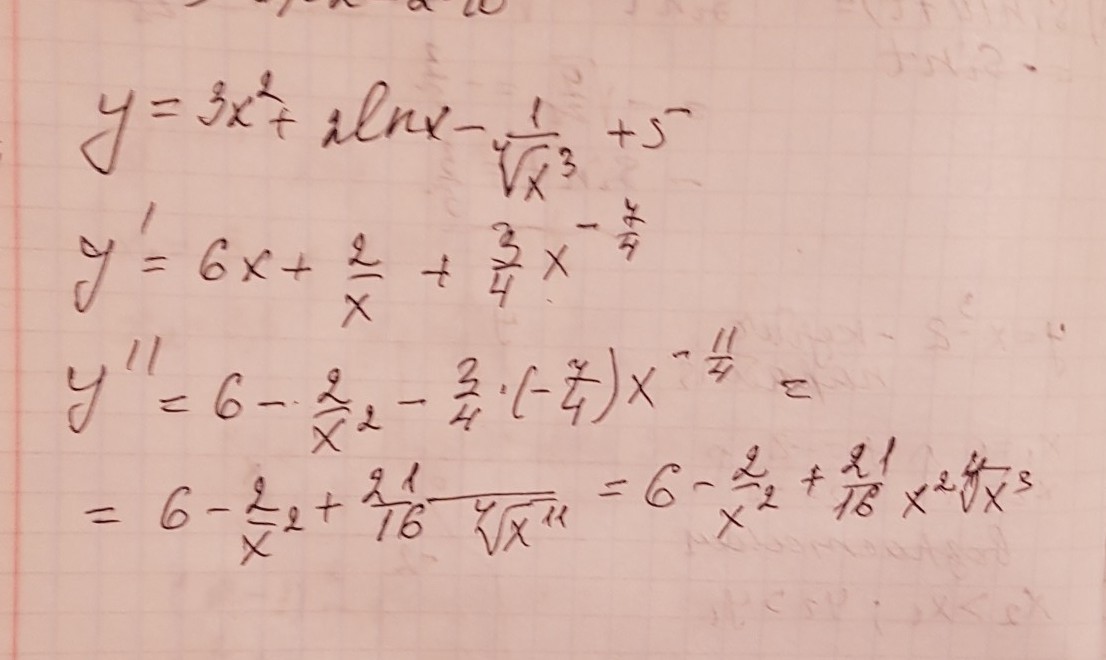 y = 3x² + 2lnx - 1/⁴√x³ + 5
y' = 6x + 2/x + 3/4 x^(-7/4)
y'' = 6 - 2/x² - 3/4 · (-7/4)x^(-11/4) =
= 6 - 2/x² + 21/16 ⁴√x¹¹ = 6 - 2/x² + 21/16 x² ⁴√x³